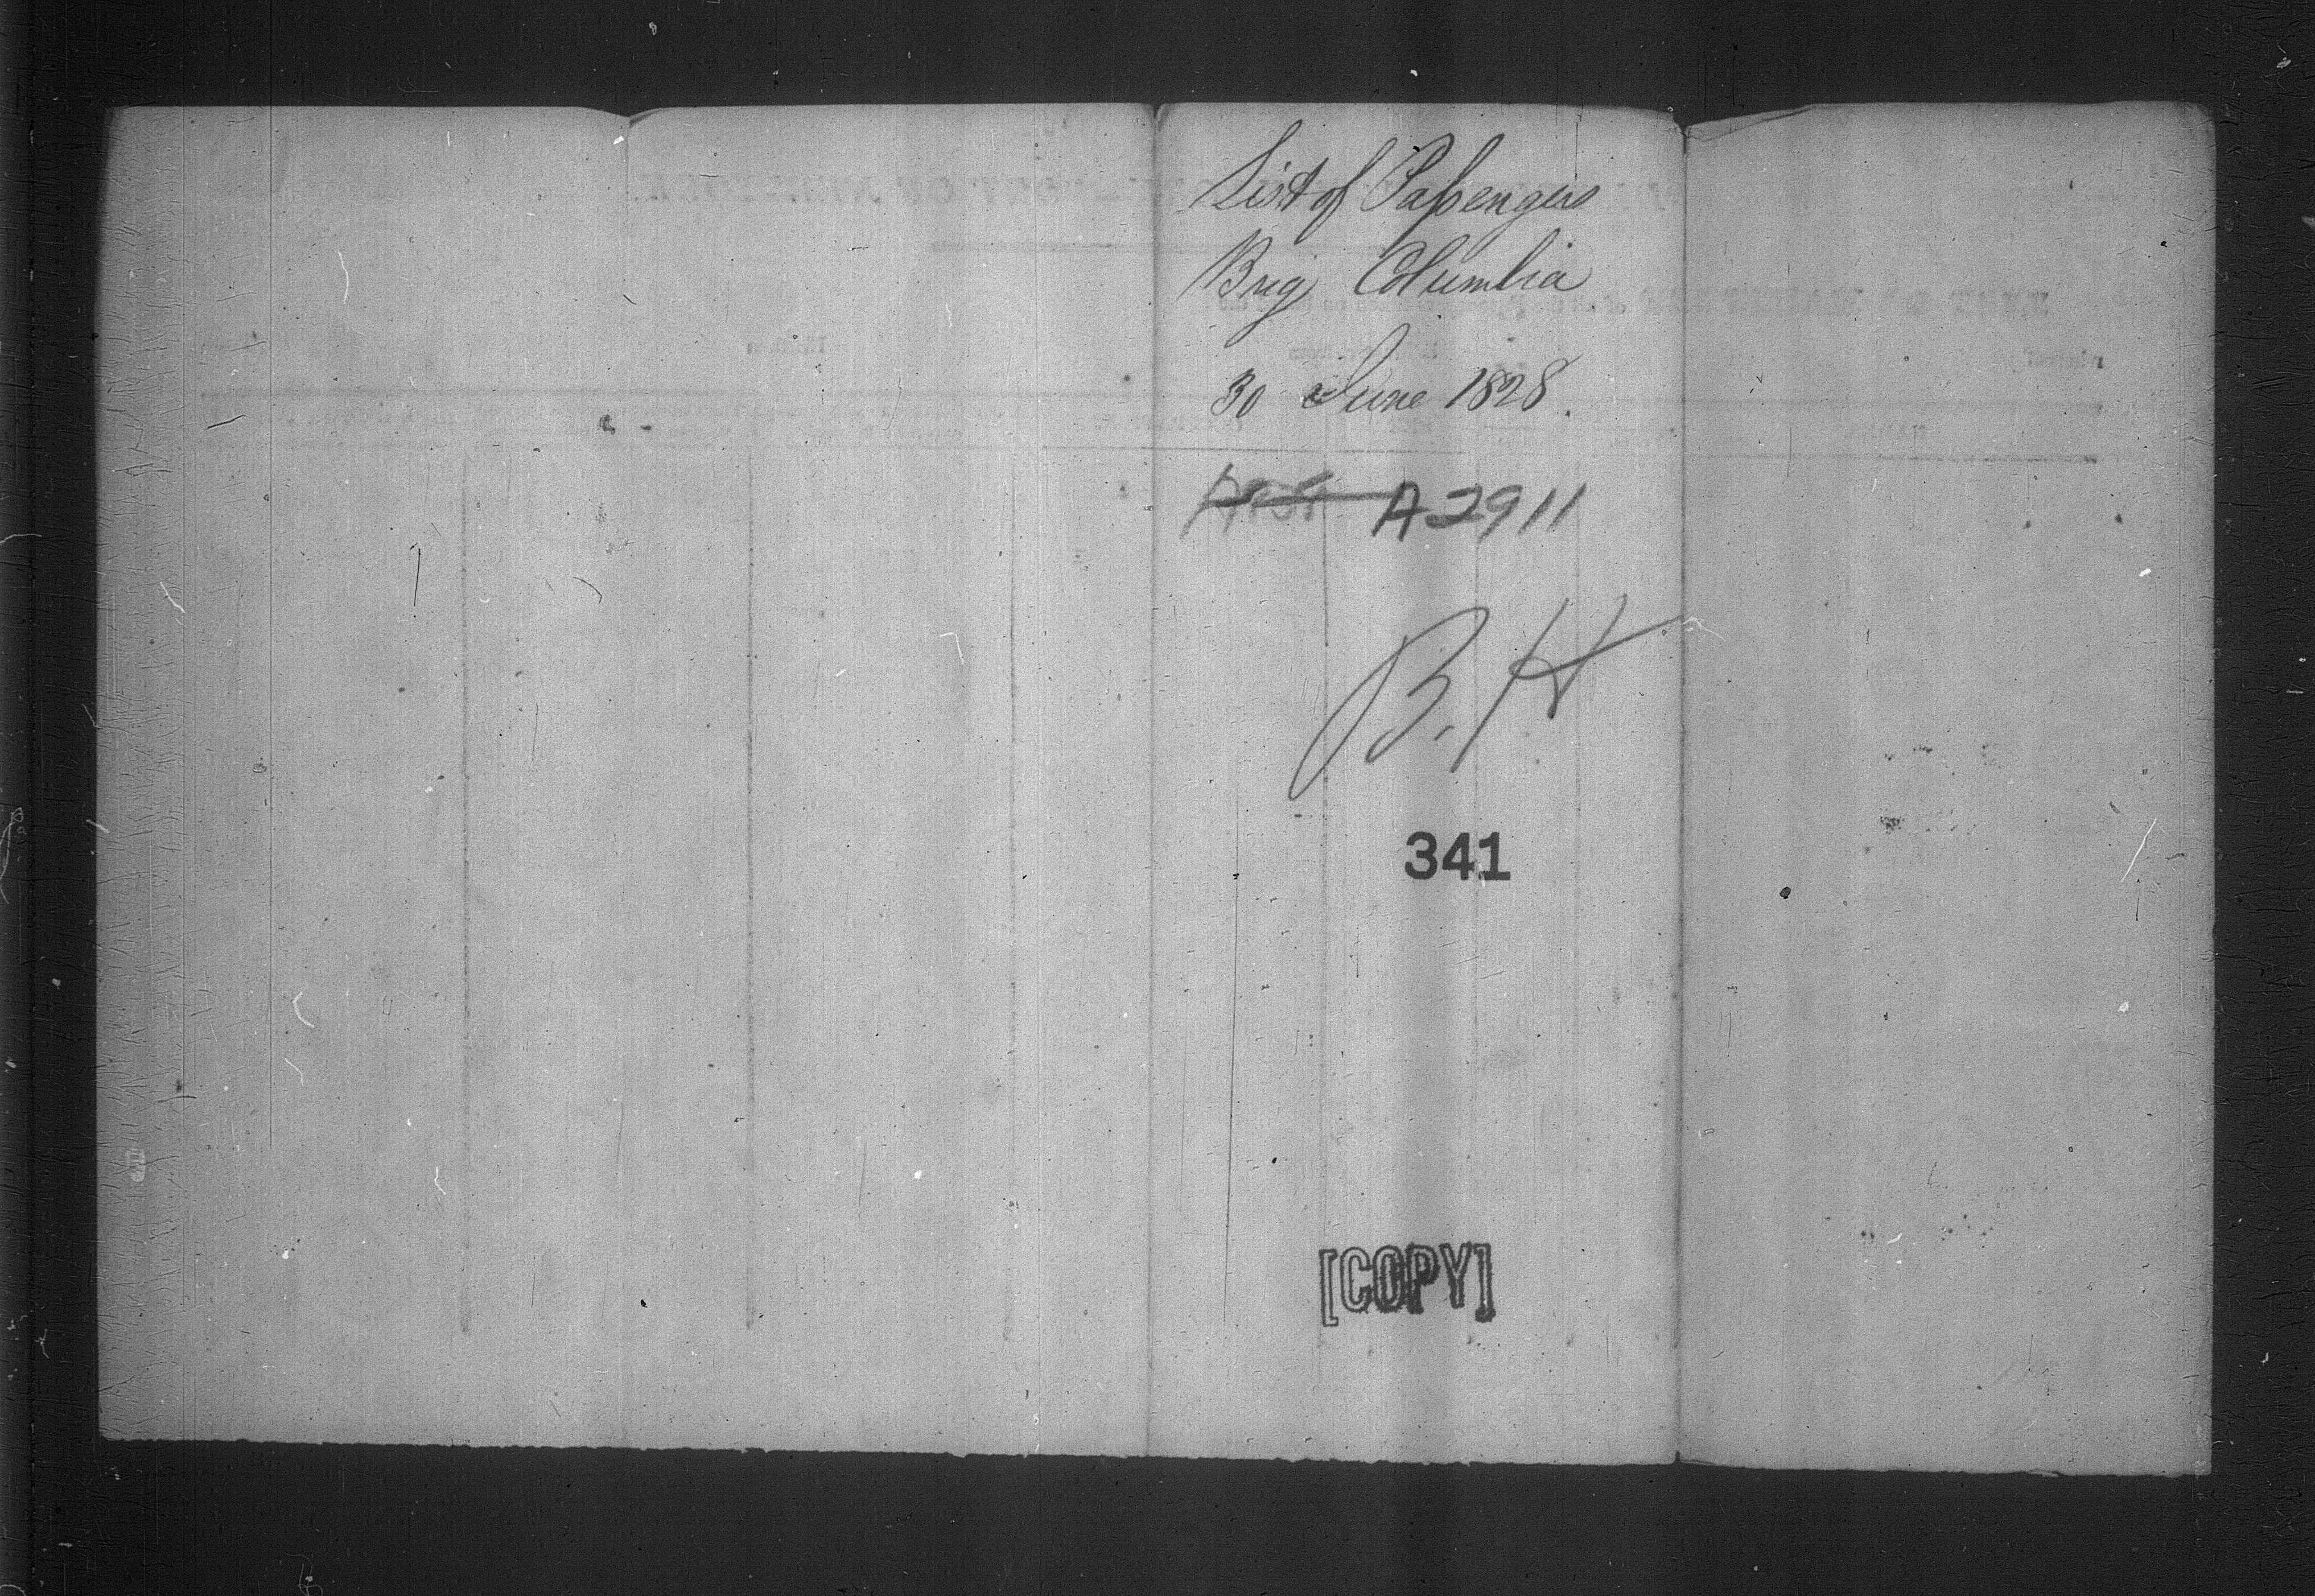 List of Passengers
Brig Columbia
30 June 1828.
A2911
B. H
341
[COPY]